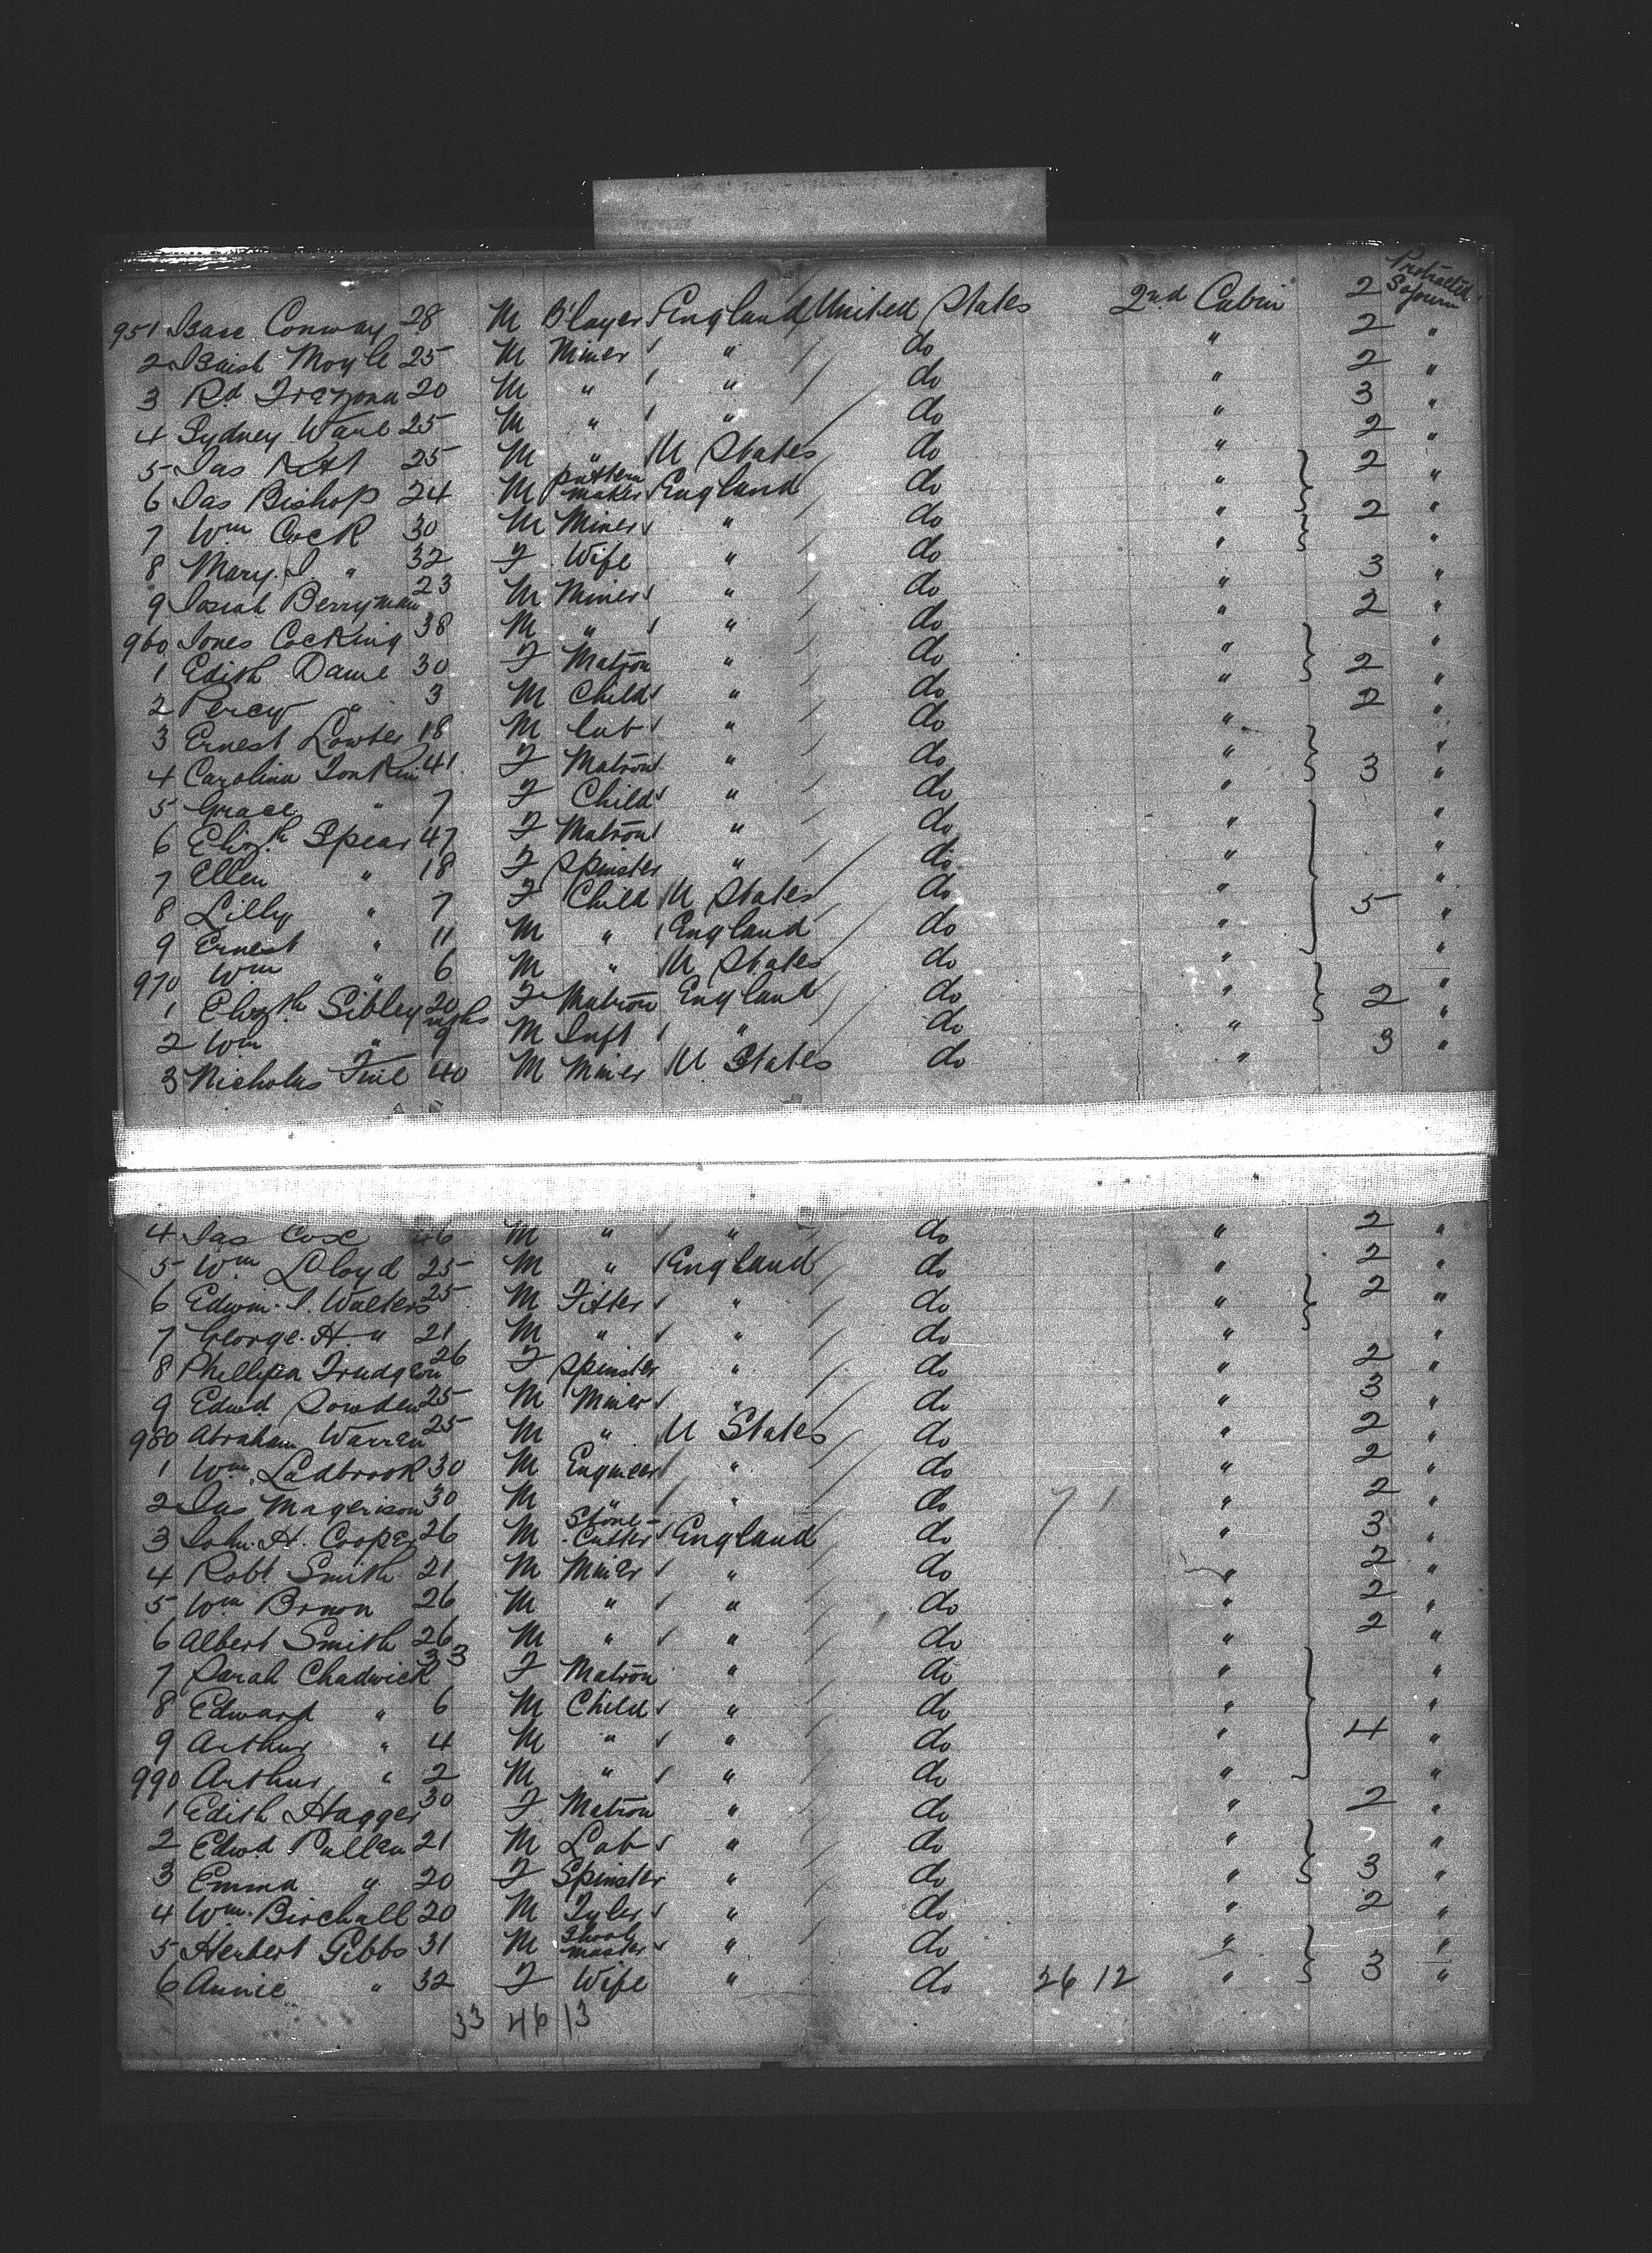 951 Isaac Conway 28 M B'layer England United States 2nd Cabin 2 Protracted Sojourn
2 Moyle 25 M Miner " do " 2 "
3 Rd Trezona 20 M " " do " 2 "
4 Sydney 25 M " " do " 3 "
5 Jas 25 M " U States do " 2 "
6 Jas Bishop 24 M pattern maker England do " 2 "
7 Wm Cock 30 M Miner " do " 2 "
8 Mary J. " 32 F Wife " do " "
9 Josiah Berryman 23 M Miner " do " 3 "
960 Jones Cocking 38 M " " do " 2 "
1 Edith 30 F Matron " do " "
2 Percy " 3 M Child " do " 2 "
3 Ernest Lowter 18 M Lab " do " 2 "
4 Carolina Tonkin 41 F Matron " do " "
5 Grace " 7 F Child " do " 3 "
6 Elizth Spear 47 F Matron " do " "
7 Ellen " 18 F Spinster " do " "
8 Lilly " 7 F Child U States do " "
9 Ernest " 11 M " England do " 5 "
970 Wm " 6 M " U States do " "
1 Elizth Sibley 20 F Matron England do " "
2 Wm " 9 mths M Inft " do " 2 "
3 Nicholas 40 M Miner U States do " 3 "
4 Jas Cox M " " do " 2 "
5 Wm Lloyd 25 M " England do " 2 "
6 Edwin J. Walters 25 M Fitter " do " 2 "
7 George. H. " 21 M " " do " "
8 Phillipa Trudgeon 26 F Spinster " do " 2 "
9 Edwd Sowden 25 M Miner " do " 3 "
980 Abraham Warren 25 M " U States do " 2 "
1 Wm. Ladbrook 30 M Engineer " do " 2 "
2 Jas Magerison 30 M " " do 7 1 " 2 "
3 John. H. Cooper 26 M Stone-Cutter England do " 3 "
4 Robt Smith 21 M Miner " do " 2 "
5 Wm Brown 26 M " " do " 2 "
6 Albert Smith 26 M " " do " 2 "
7 Sarah Chadwick 33 F Matron " do " "
8 Edward " 6 M Child " do " "
9 Arthur " 4 M " " do " 4 "
990 Arthur " 2 M " " do " "
1 Edith Hagger 30 F Matron " do " 2 "
2 Edwd Pullen 21 M Lab " do " "
3 Emma " 20 F Spinster " do " 3 "
4 Wm. Birchall 20 M Tyler " do " 2 "
5 Herbert Gibbs 31 M Shool master " do " "
6 Annie " 32 F Wife " do 26 12 " 3 "
33 46 13